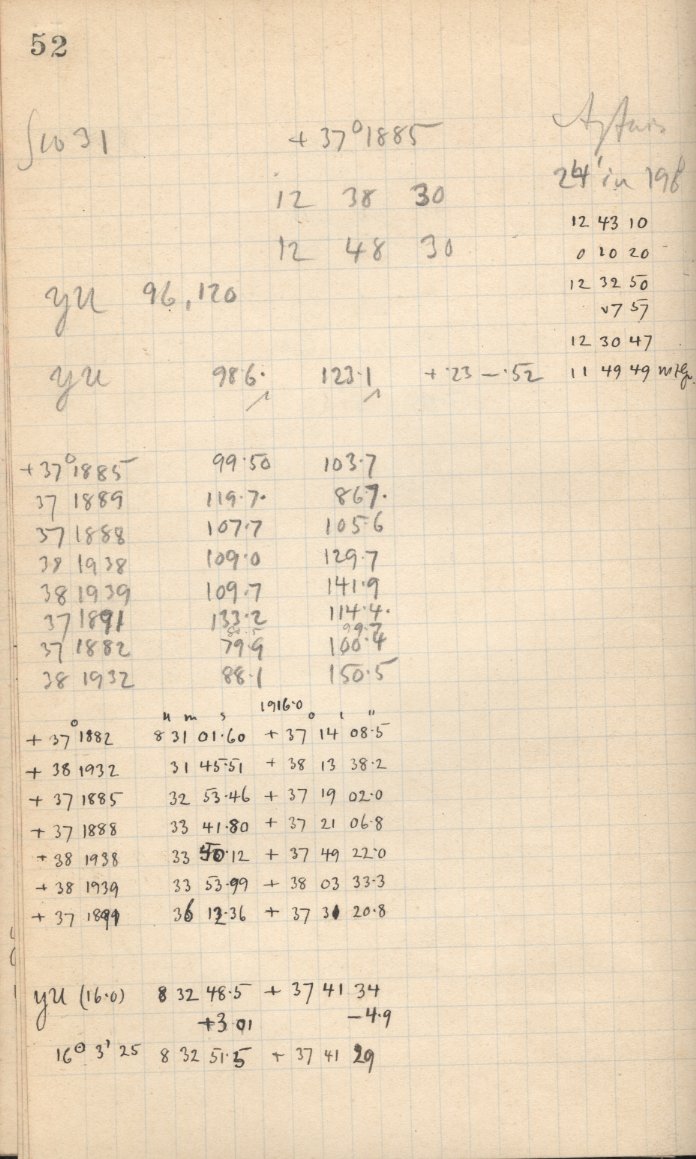 52
31 + 37° 1885
24' in
12 38 30
12 48 30
12 43 10
0 10 20
12 32 50
12 30 47
yu 96, 120
yu 98.6. 123.1 + .23 - .52 11 49 49
+ 37° 1885 99.50 103.7
37 1889 119.7. 86.7.
37 1888 107.7 105.6
38 1938 109.0 129.7
38 1939 109.7 141.9
37 1891 133.2 114.4.
99.7
37 1882 79.9 100.4
38 1932 88.1 150.5
1916.0
h m s ° ' "
+ 37° 1882 8 31 01.60 + 37 14 08.5
+ 38 1932 31 45.51 + 38 13 38.2
+ 37 1885 32 53.46 + 37 19 02.0
+ 37 1888 33 41.80 + 37 21 06.8
+ 38 1938 33 50.12 + 37 49 22.0
+ 38 1939 33 53.99 + 38 03 33.3
+ 37 1891 36 12.36 + 37 31 20.8
yu (16.0) 8 32 48.5 + 37 41 34
+3 01 -4.9
16° 3' 25 8 32 51.5 + 37 41 29